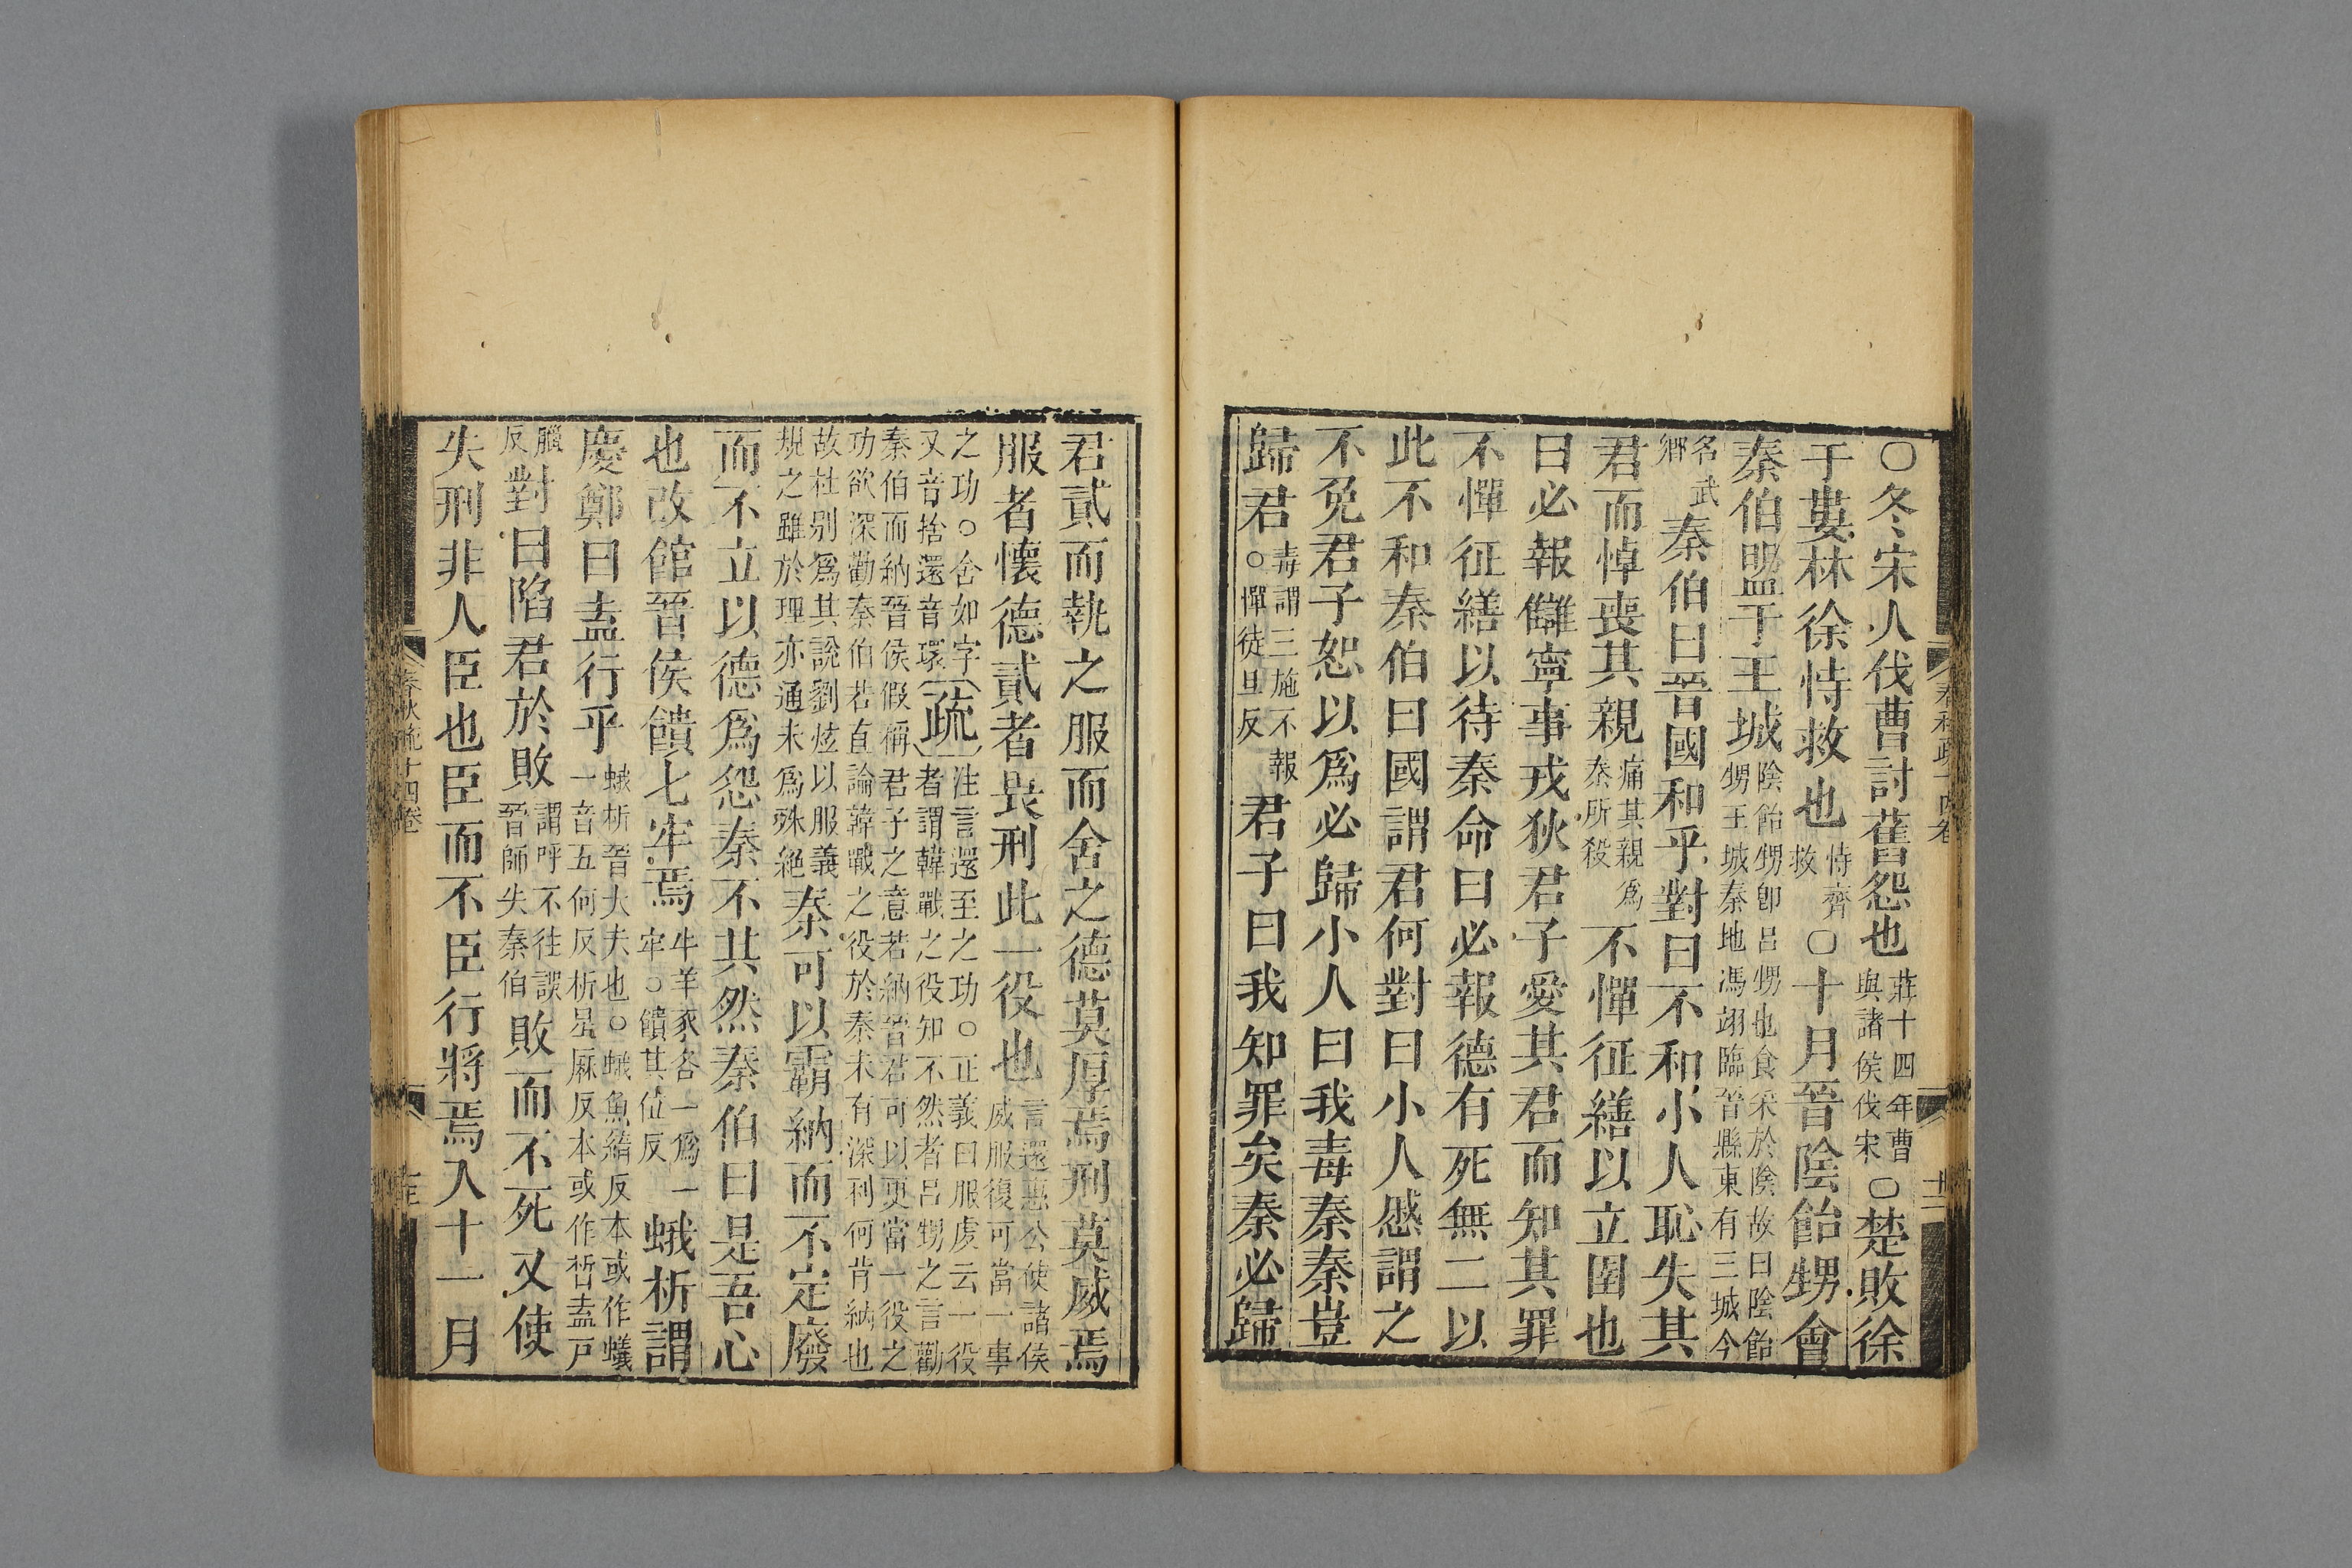 ○冬宋人伐曹討舊怨也莊十四年曹與諸侯伐宋○楚敗徐
于婁林徐恃救也恃齊救○十月晉陰飴甥會
秦伯盟于王城陰飴甥卽呂甥也食采於陰故曰陰飴甥王城秦地馮翊臨晉縣東有三城今
名武鄉秦伯曰晉國和乎對曰不和小人恥失其
君而悼喪其親痛其親爲秦所殺不憚征繕以立圉也
曰必報讎寧事戎狄君子愛其君而知其罪
不憚征繕以待秦命曰必報德有死無二以
此不和秦伯曰國謂君何對曰小人慼謂之
不免君子恕以爲必歸小人曰我毒秦秦豈
歸君毒謂三施不報○憚徒旦反君子曰我知罪矣秦必歸
君貳而執之服而舍之德莫厚焉刑莫威焉
服者懷德貳者畏刑此一役也言還惠公使諸侯威服復可當一事
之功○舍如字又音捨還音環疏注言還至之功○正義曰服虔云一役者謂韓戰之役知不然者呂甥之言勸
秦伯而納晉侯假稱君子之意若納晉君可以更當一役之功欲深勸秦伯若直論韓戰之役於秦未有深利何肯納也
故杜别爲其說劉炫以服義規之雖於理亦通未爲殊絶秦可以霸納而不定廢
而不立以德爲怨秦不其然秦伯曰是吾心
也改館晉侯饋七牢焉牛羊豕各一爲一牢○饋其位反蛾析謂
慶鄭曰盍行乎蛾析晉大夫也○蛾魚綺反本或作蟻一音五何反析星厤反本或作晳盍戸
臘反對曰陷君於敗謂呼不往誤晉師失秦伯敗而不死又使
失刑非人臣也臣而不臣行將焉入十一月
春秋疏十四卷